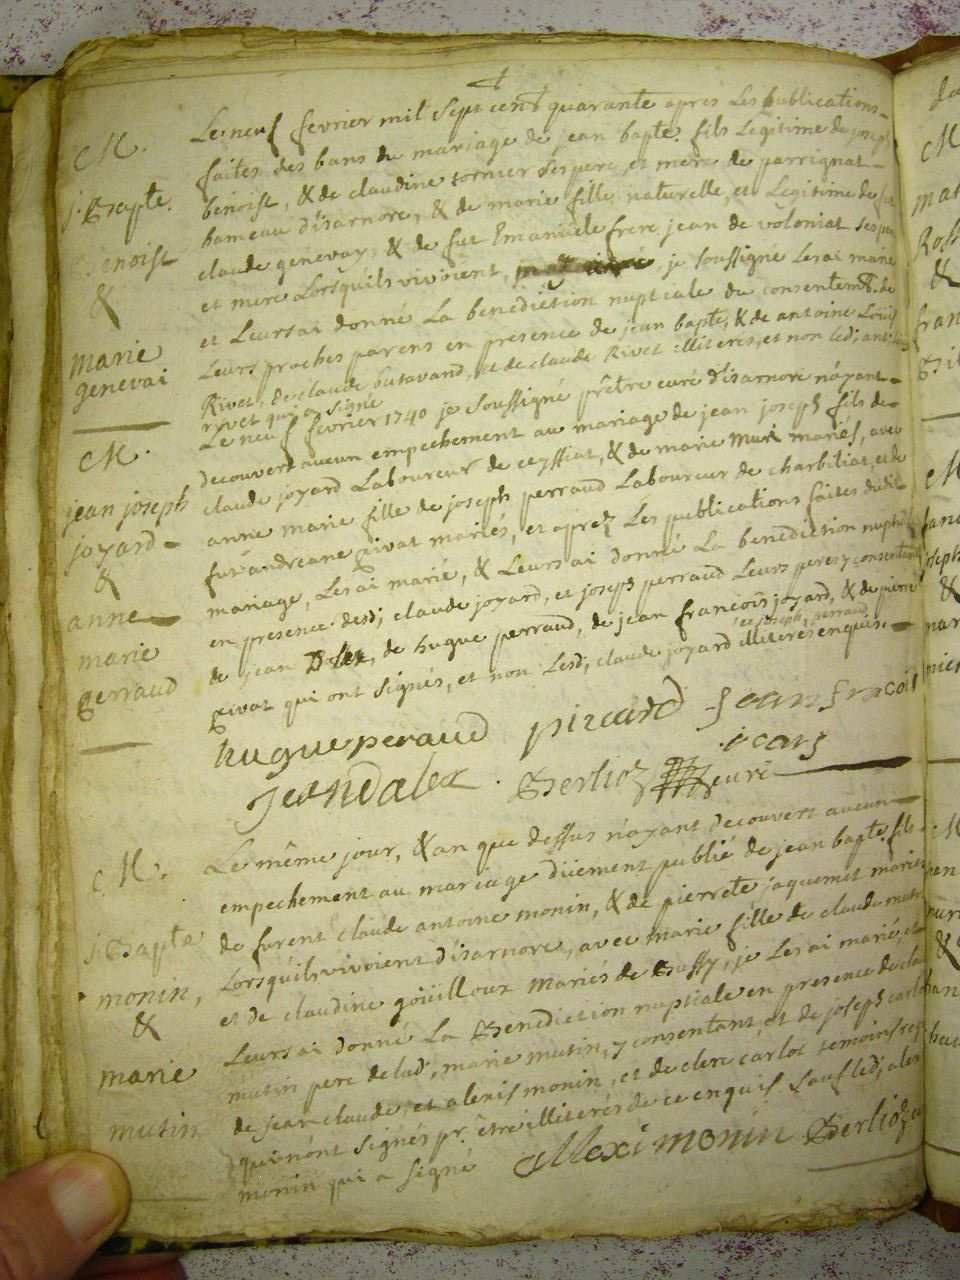 M.
j. Bapte.
Benoist
&
marie
genevai
Le neuf fevrier mil sept cent quarante apres les publications
faites des bans du mariage de jean bapte. fils legitime de joseph
benoist, & de claudine tornier ses pere, et mere de parrignat
hameau d'isarnore, & de marie fille naturelle, et legitime de fut
claude genevay, & de fut Emanuele frere jean de volognat ses pere
et mere lorsquils vivoient, je soussigné les ai marié
et leurs ai donné la benediction nuptiale du consentemt. de
leurs proches parens en presence de jean bapte, & de antoine Louis
Rivet, de claude butavand, et de claude Rivet illiteres, et non led; ant:
rivet qui a signé
M.
jean joseph
joyard
&
anne
marie
perraud
Le neuf fevrier 1740 je soussigné prêtre curé d'isarnore n'ayant
decouvert aucun empechement au mariage de jean joseph fils de
claude joyard Laboureur de ceyssiat, & de marie Muri mariés, avec
anne marie fille de joseph perraud Laboureur de charbillat, et de
fut andreane pivat mariés, et aprez les publications faites dudit
mariage, Les ai marié, & Leurs ai donné La benediction nuptiale
en presence desd; claude joyard, et joseph perraud Leurs peres y consentants
de jean Dalex, de hugue perraud, de jean francois joyard, & de pierre
et joseph perraud
pivat qui ont signés, et non Lesd; claude joyard illiterés enquis.
hugue peraud pivard jean fracois
jean Dalex. Berlioz curé
M.
j. Bapte
monin,
&
marie
mutin
Le même jour, & an que dessus n'ayant decouvert aucun
empechement au mariage düement publié de jean bapte. fils
de furent claude antoine monin, & de pierrete jaquemet mariés
Lorsquils vivoient d'isarnore, avec marie fille de claude mutin
et de claudine goüilloux mariés de Bussy, je Les ai marié, et
Leurs ai donné La Benediction nuptiale en presence de claude
mutin pere de lad; marie mutin, y consentant, et de joseph carlot
de jean claude, et alexis monin, et de clerc carlot temoins req
qui n'ont signés pr. être illiterés de ce enquis sauf led; alexis
monin qui a signé Alexi monin Berlioz